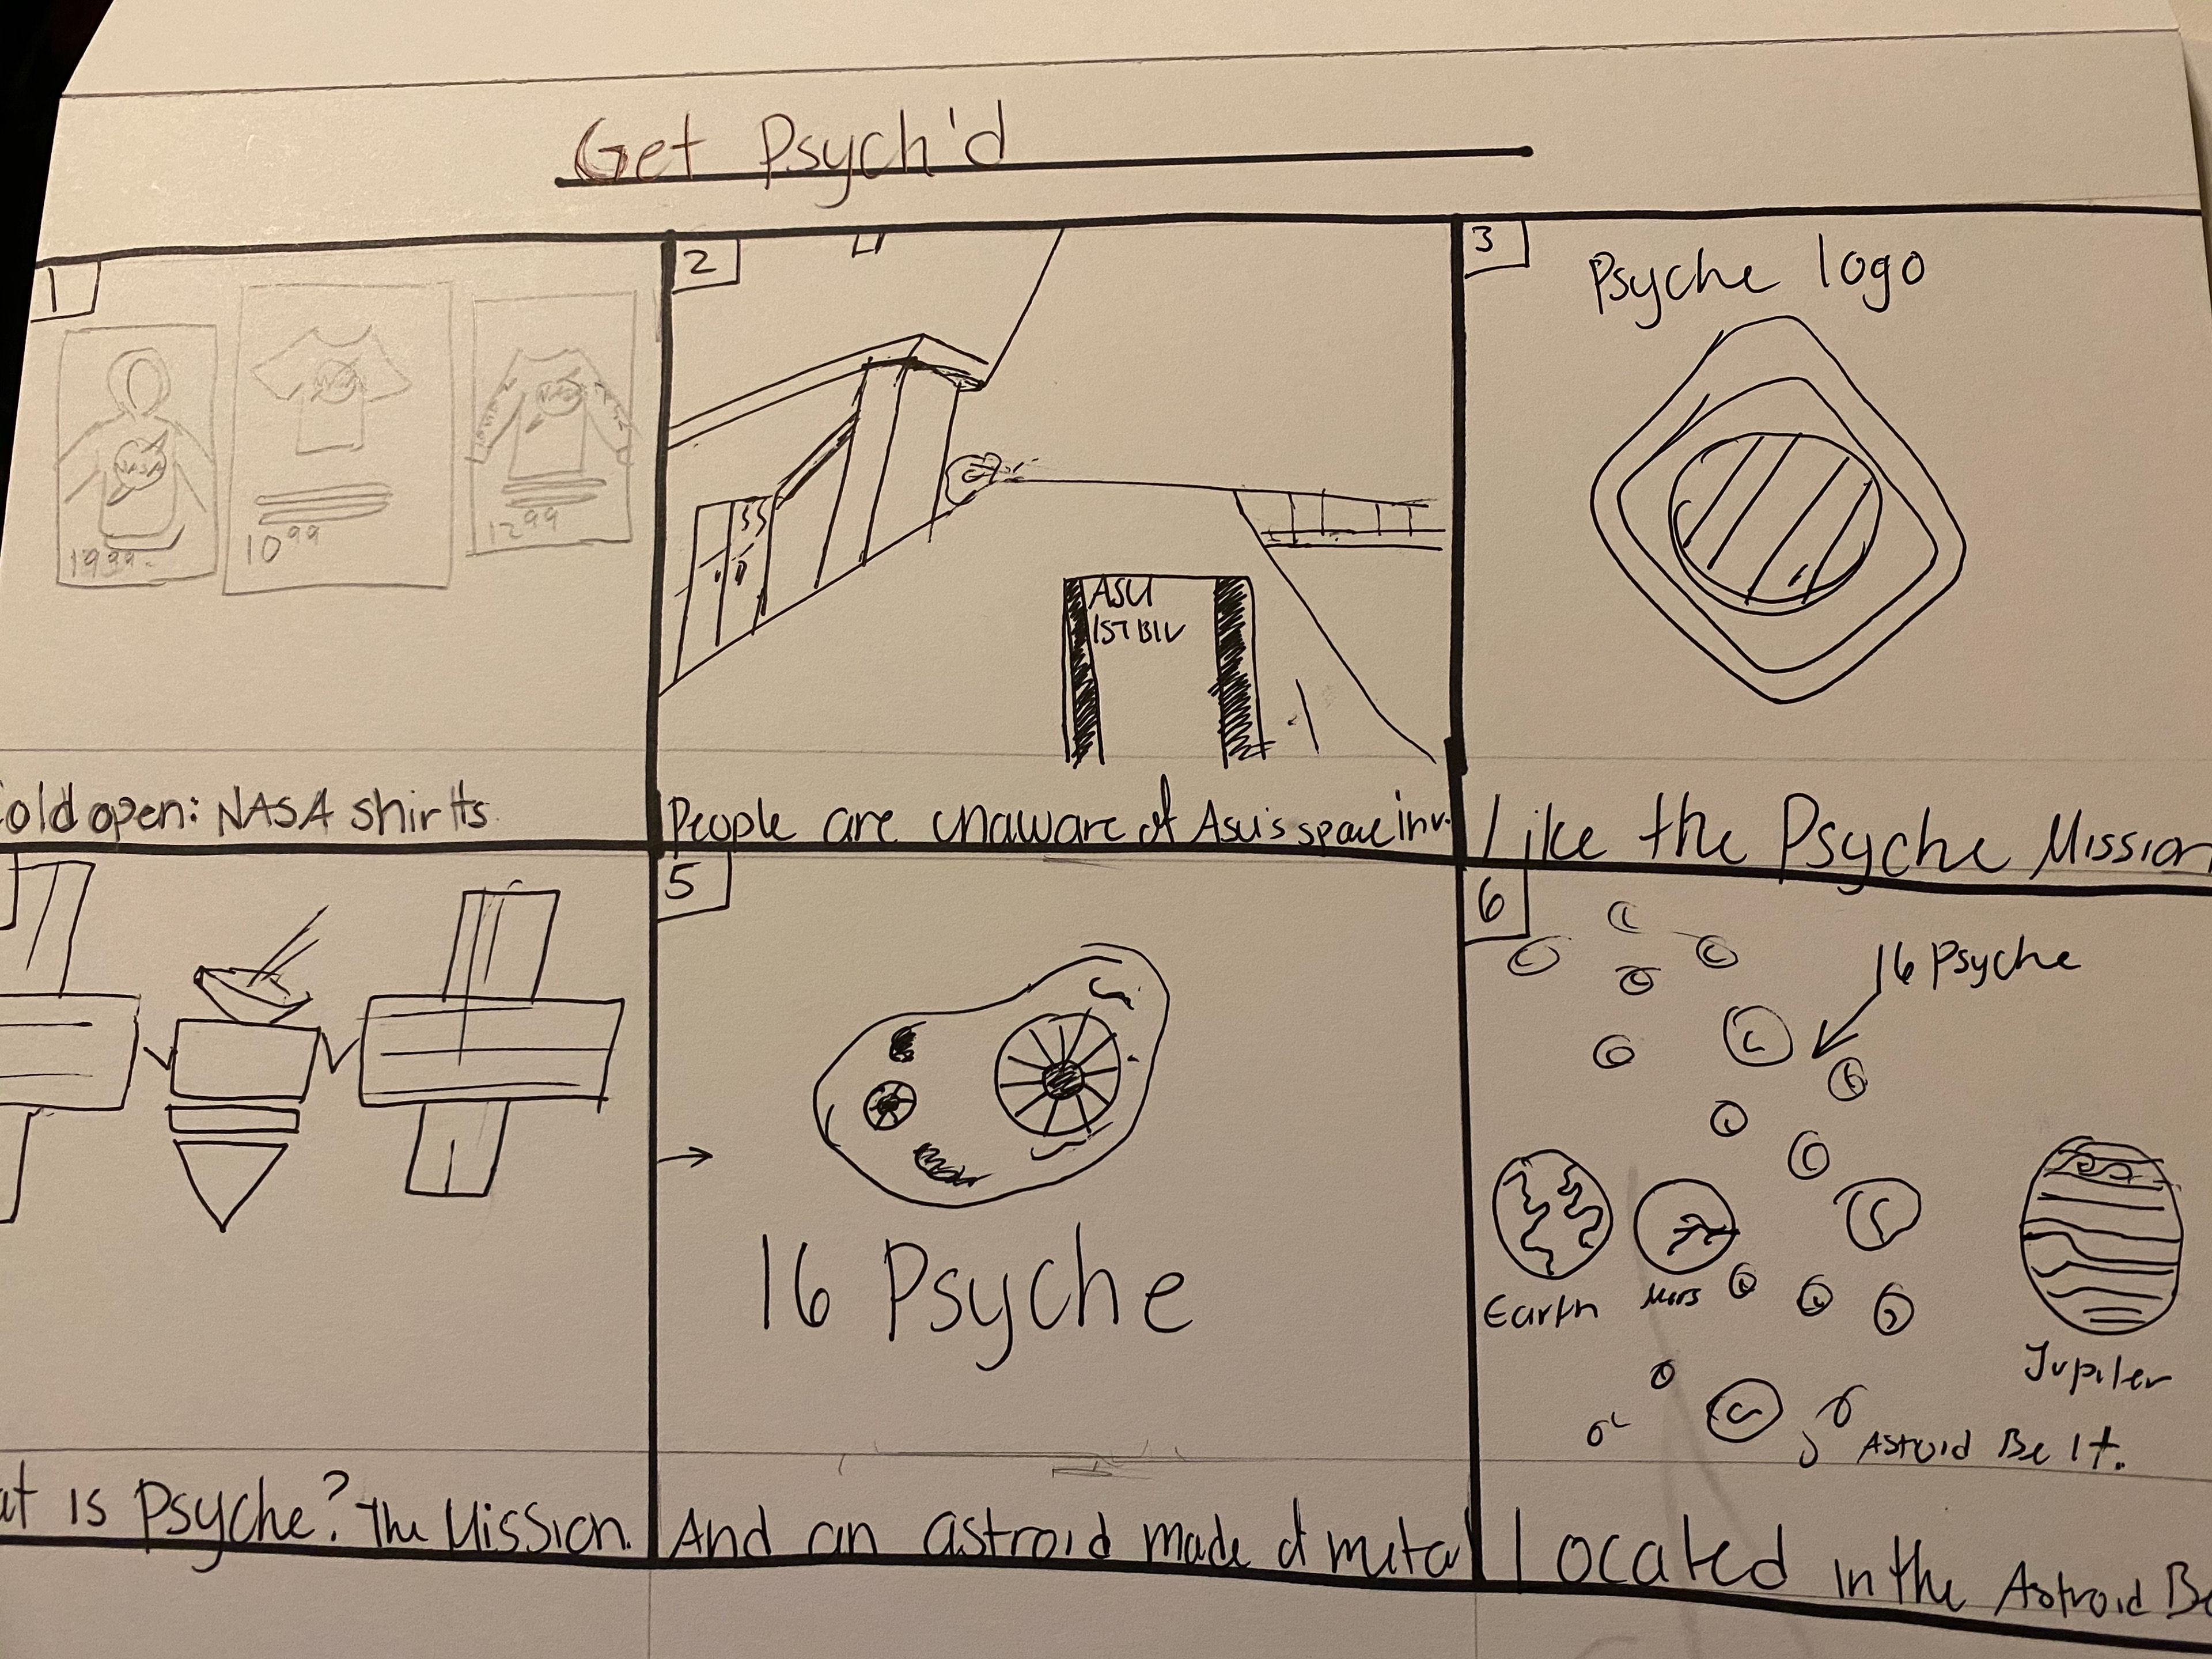 Get Psych'd
1
NASA
NASA
NASA
19.99
10.99
12.99
old open: NASA shirts
2
ASU
People are unaware of ASU's space inv.
3
Psyche logo
Like the Psyche Mission
at is Psyche? The Mission.
5
16 Psyche
And an astroid made of metal
6
16 Psyche
Earth
Mars
Jupiter
Astroid Belt.
Located in the Astroid Be